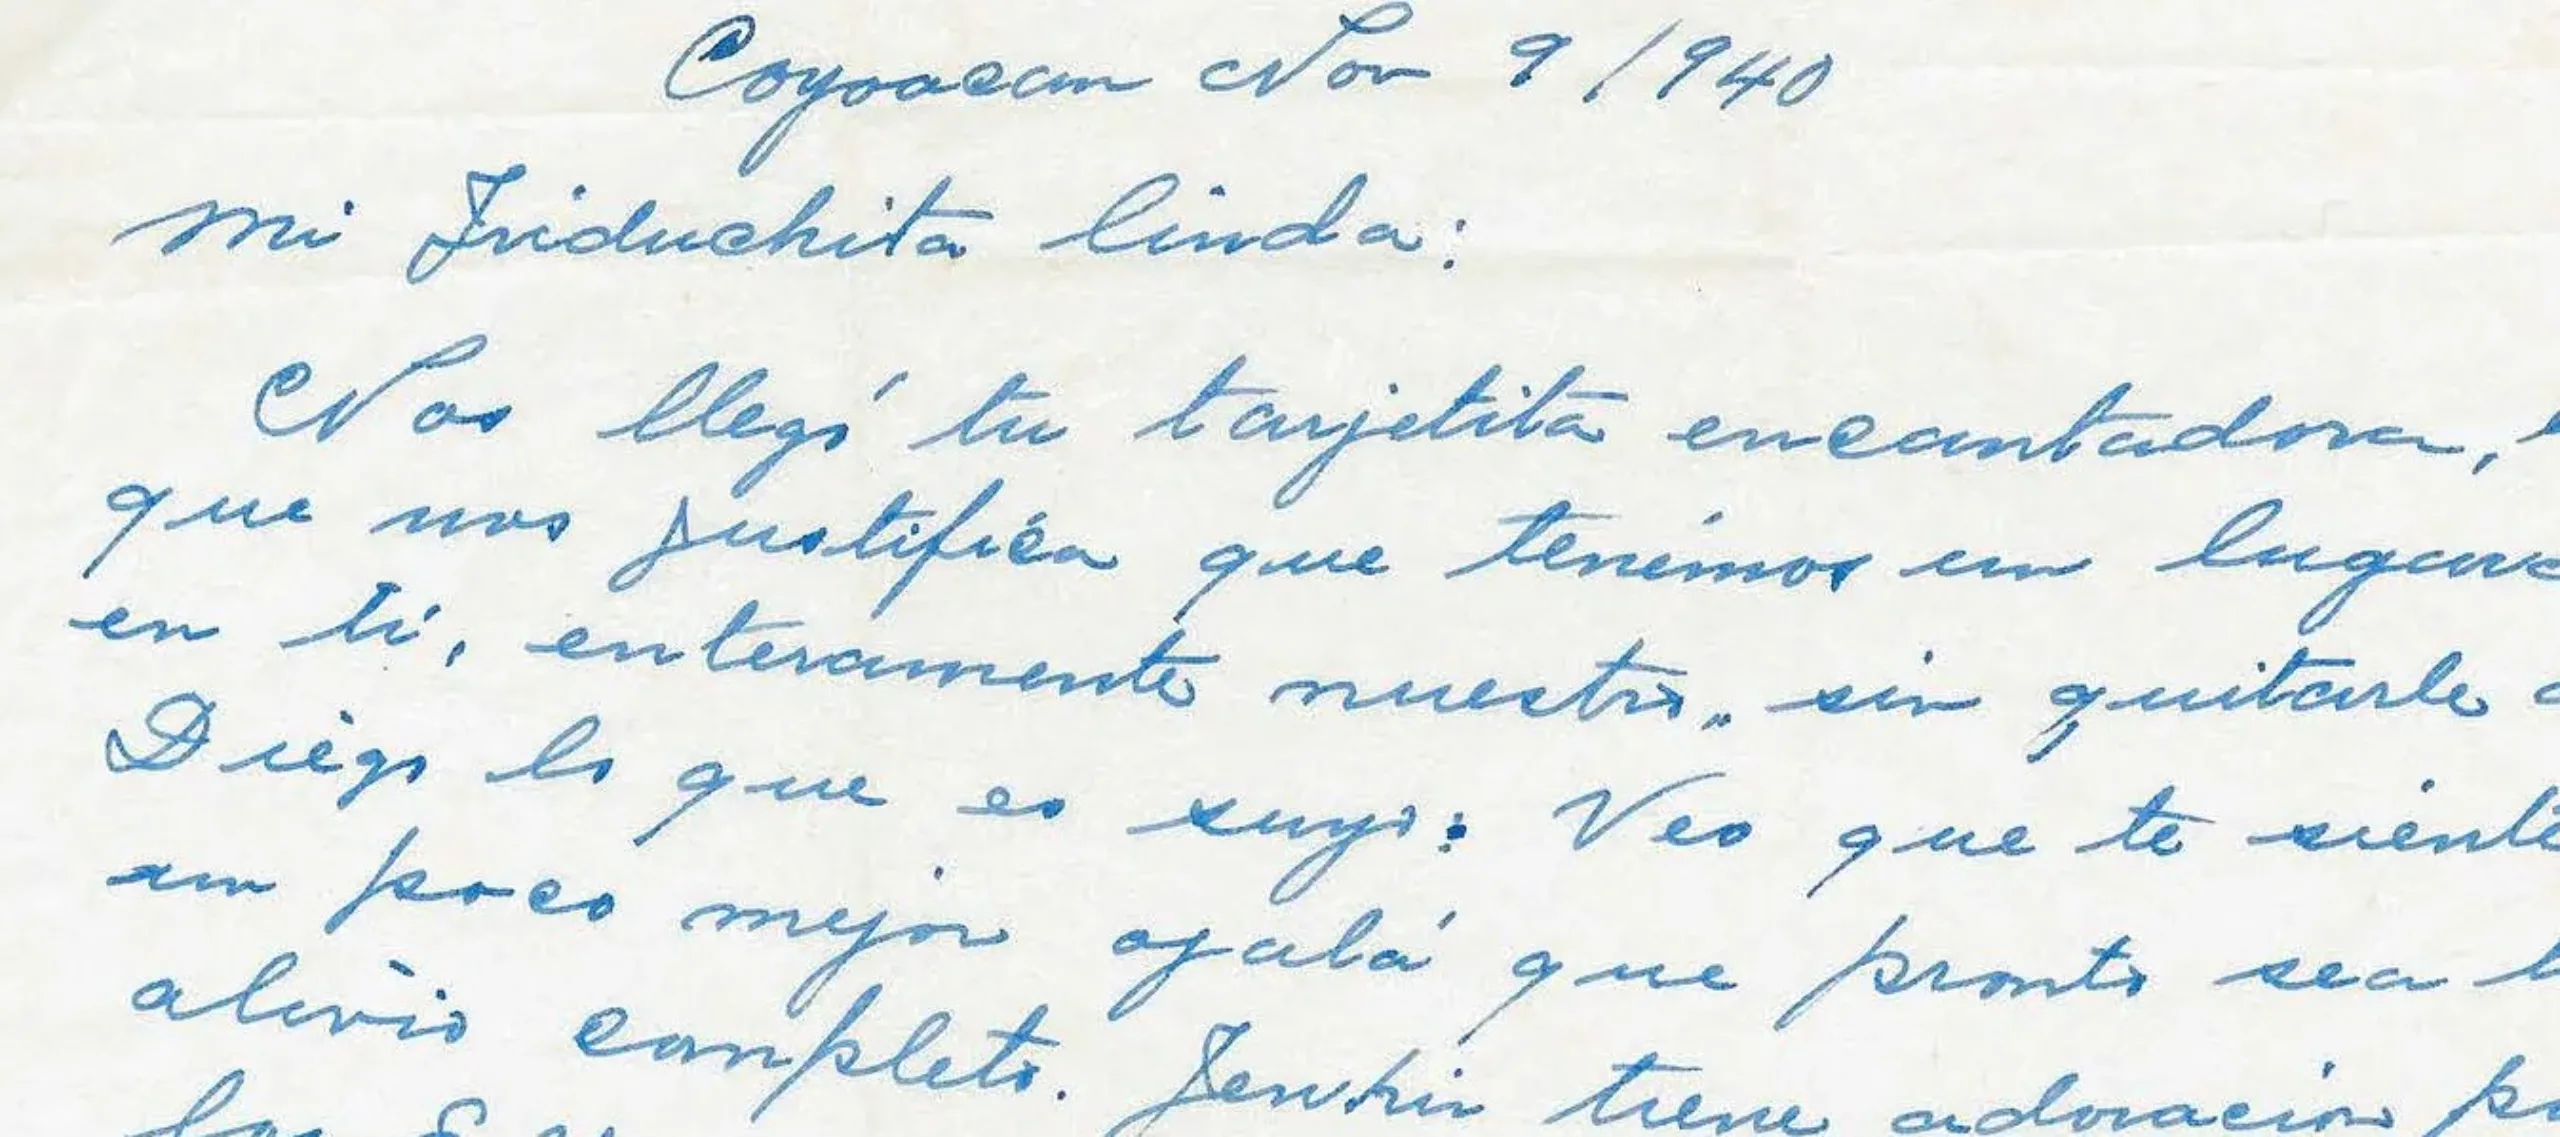 Coyoacan Nov 9/940
Mi Friduchita linda:
Nos llegó tu tarjetita encantadora,
que nos justifica que tenémos un
en tí, enteramente nuestro,, sin quitarle
Diego lo que es suyo: Veo que te
un poco mejor ojalá que pronto sea
alivio completo. tiene adoracion